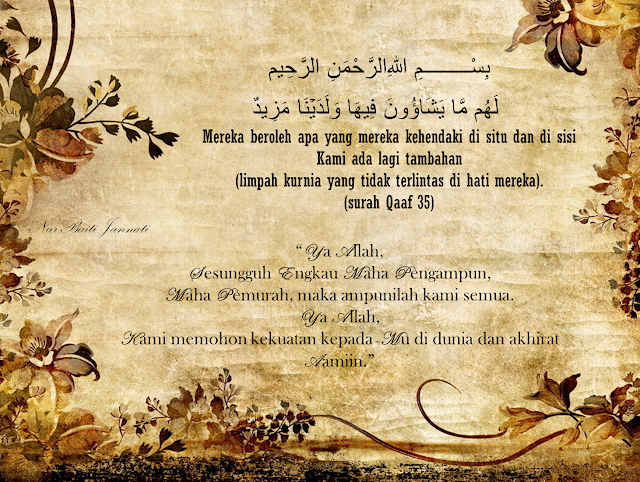 بِسْــــــــمِ اللهِ الرَّحْمَنِ الرَّحِيم
لَهُم مَّا يَشَاؤُونَ فِيهَا وَلَدَيْنَا مَزِيدٌ
Mereka beroleh apa yang mereka kehendaki di situ dan di sisi
Kami ada lagi tambahan
(limpah kurnia yang tidak terlintas di hati mereka).
(surah Qaaf 35)
Nur Baiti Jannati
“ Ya Allah,
Sesungguh Engkau Maha Pengampun,
Maha Pemurah, maka ampunilah kami semua.
Ya Allah,
Kami memohon kekuatan kepada -Mu di dunia dan akhirat
Aamiin.”